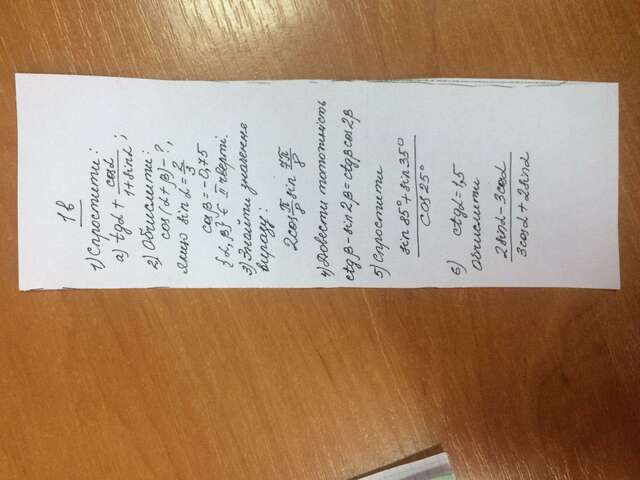 1 в
1) Спростити:
а) tgα + cosα / 1+sinα ;
2) Обчислити:
cos(α+β) - ? ,
якщо sinα = 2/3 ,
cosβ = -0,75
{α, β} ∈ II чверті.
3) Знайти значення
виразу:
2cos π/8 sin 7π/8
4) Довести тотожність
ctgβ - sin2β = ctgβ cos2β
5) Спростити
sin 85° + sin 35° / cos 25°
6) ctgα = 1,5
Обчислити
2sinα - 3cosα / 3cosα + 2sinα